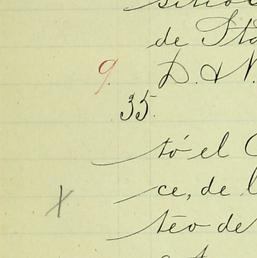 de Sta
9. D. & N.
35.
tó el C
ce, de l
teo de